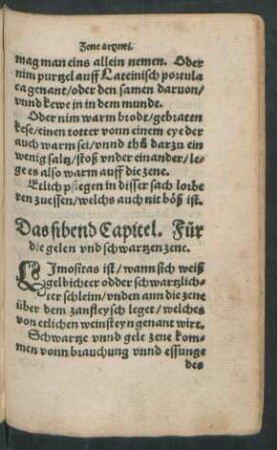 Zene artznei.
mag man eins allein nemen. Oder
nim purtzel auff Lateinisch portula
ca genant/ oder den samen daruon/
vnnd kewe jn in dem munde.
Oder nim warm brodt/ gebraten
kese/ einen totter vonn einem ey der
auch warm sei/ vnnd thů darzu ein
wenig saltz/ stoß vnder einander/ le-
ge es also warm auff die zene.
Etlich pflegen in disser sach lorbe
ren zuessen/ welchs auch nit böß ist.
Das sibend Capitel. Für
die gelen vnd schwartzen zene.
LJmositas ist/ wann sich weiß
gelbichter odder schwartzlich-
ter schleim/ vnden ann die zene
über dem zanfleysch leget/ welches
von etlichen weinsteyn genant wirt.
Schwartze vnnd gele zene kom-
men vonn brauchung vnnd essunge
des